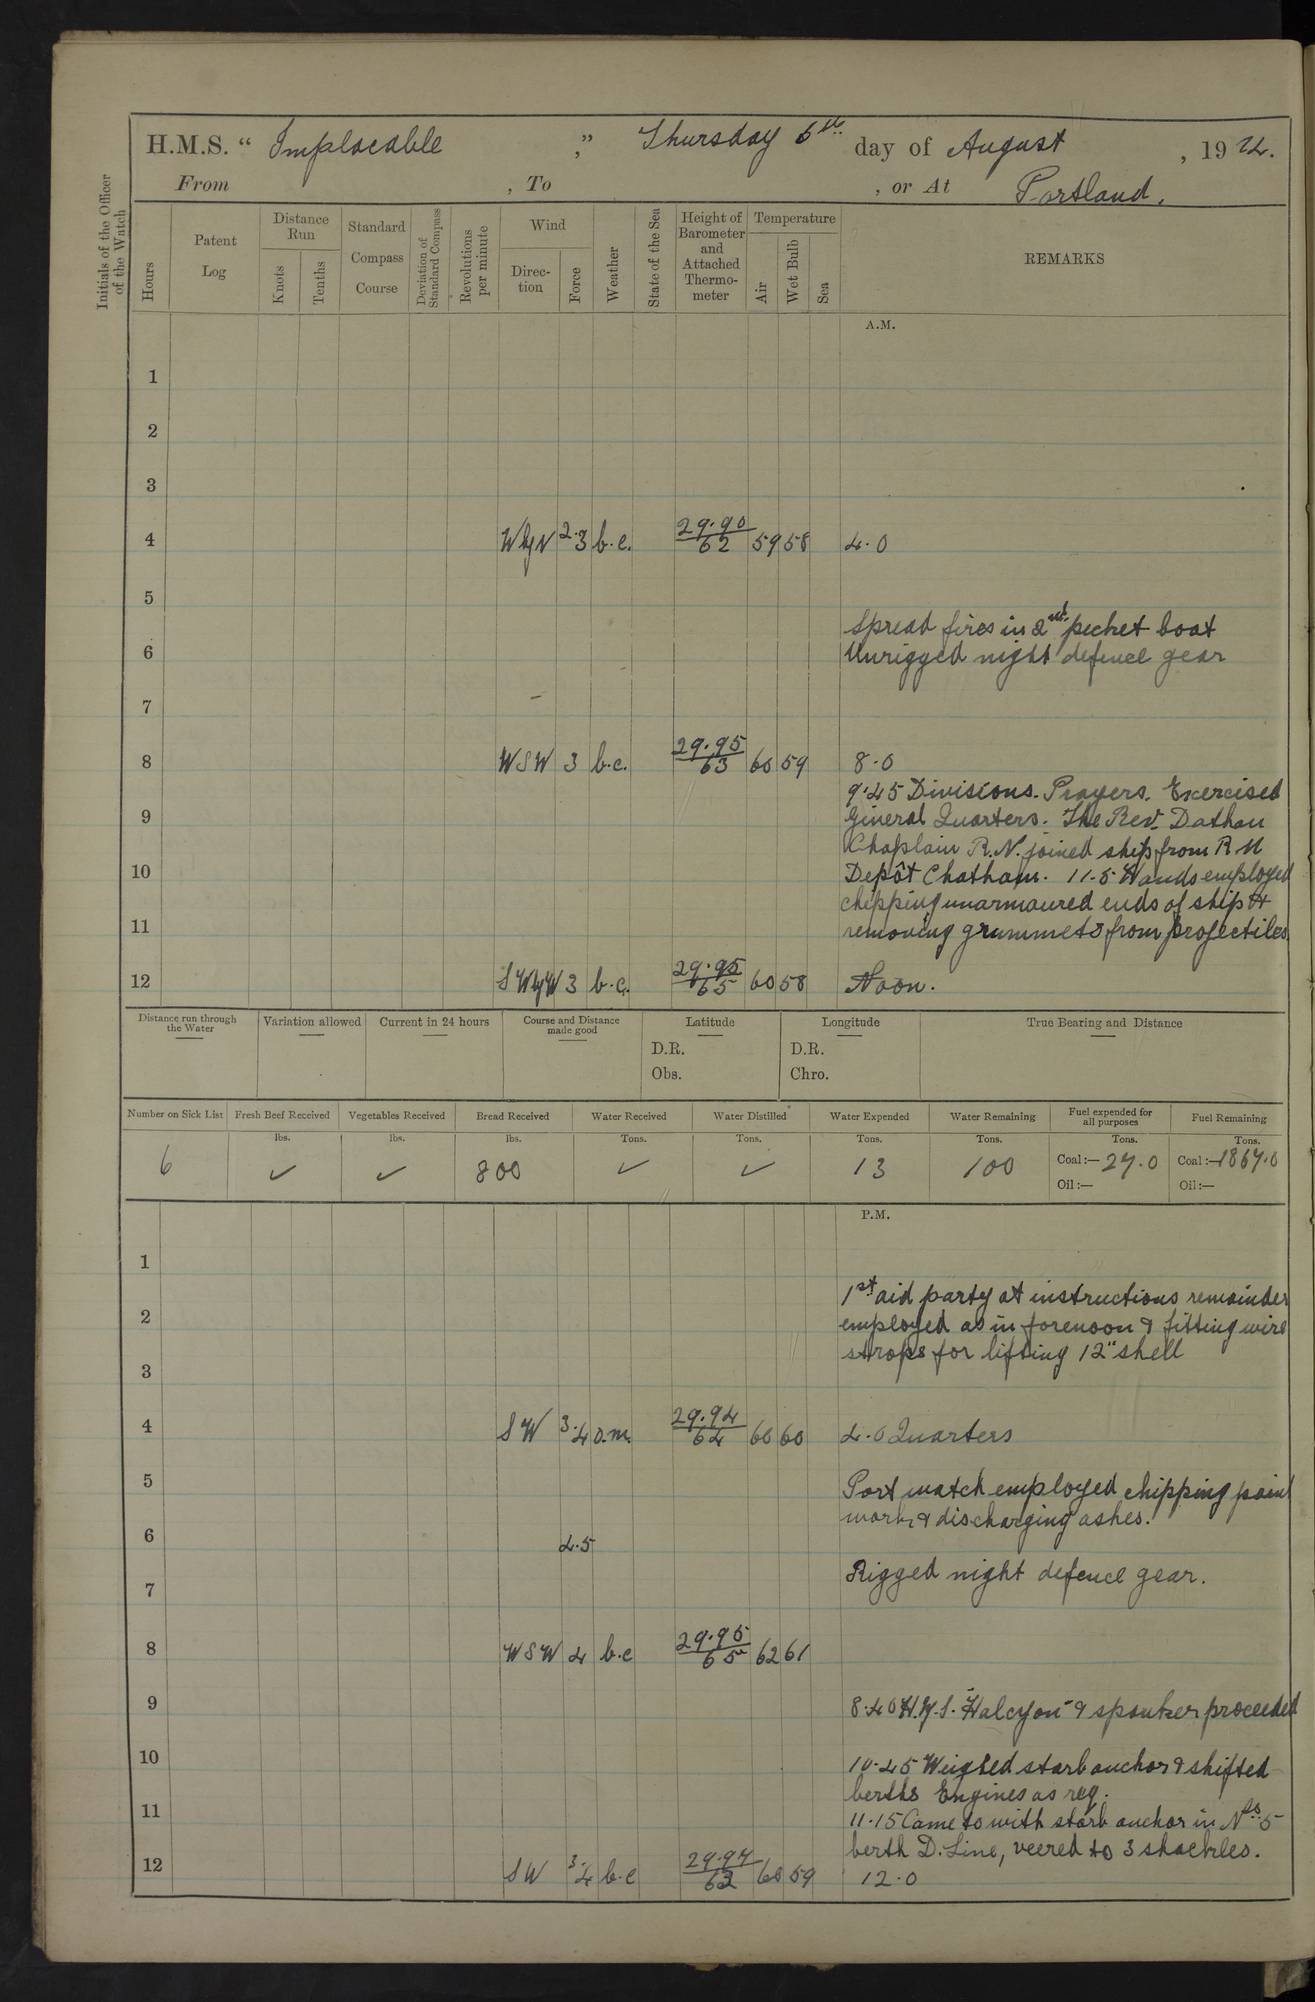 H.M.S. “ Implacable ,” Thursday 6th. day of August , 1914.
From , To , or At Portland.
Initials of the Officer of the Watch
Hours
Patent Log
Distance Run
Knots
Tenths
Standard Compass Course
Deviation of Standard Compass
Revolutions per minute
Wind
Direction
Force
Weather
State of the Sea
Height of Barometer and Attached Thermometer
Temperature
Air
Wet Bulb
Sea
REMARKS
A.M.
1
2
3
4 WbyN 2.3 b.c. 29.90/62 59 58 4.0
5
Spread fires in 2nd picket boat
6 Unrigged night defence gear
7
8 WSW 3 b.c. 29.95/63 60 59 8.0
9.45 Divisions. Prayers. Exercised
9 General Quarters. The Rev. Dathan
Chaplain R.N. joined ship from R M
10 Depôt Chatham. 11.5 Hands employed
chipping unarmoured ends of ship &
11 removing grummets from projectiles
12 SWbyW 3 b.c. 29.95/65 60 58 Noon.
Distance run through the Water
Variation allowed
Current in 24 hours
Course and Distance made good
Latitude
D.R.
Obs.
Longitude
D.R.
Chro.
True Bearing and Distance
Number on Sick List Fresh Beef Received Vegetables Received Bread Received Water Received Water Distilled Water Expended Water Remaining Fuel expended for all purposes Fuel Remaining
lbs. lbs. lbs. Tons. Tons. Tons. Tons. Tons. Tons.
6 ✓ ✓ 800 ✓ ✓ 13 100 Coal:— 27.0 Coal:— 1867.0
Oil:— Oil:—
P.M.
1
1st aid party at instructions remainder
2 employed as in forenoon & fitting wire
strops for lifting 12" shell
3
4 SW 3.4 o.m. 29.94/64 60 60 4.0 Quarters
5 Port watch employed chipping paint
work & discharging ashes.
6 4.5
Rigged night defence gear.
7
8 WSW 4 b.c 29.95/65 62 61
9 8.40 H.M.S. "Halcyon" & spanker proceeded
10 10.45 Weighed starb anchor & shifted
berths Engines as req.
11 11.15 Came to with starb anchor in No. 5
berth D. Line, veered to 3 shackles.
12 SW 3.4 b.c 29.97/63 60 59 12.0